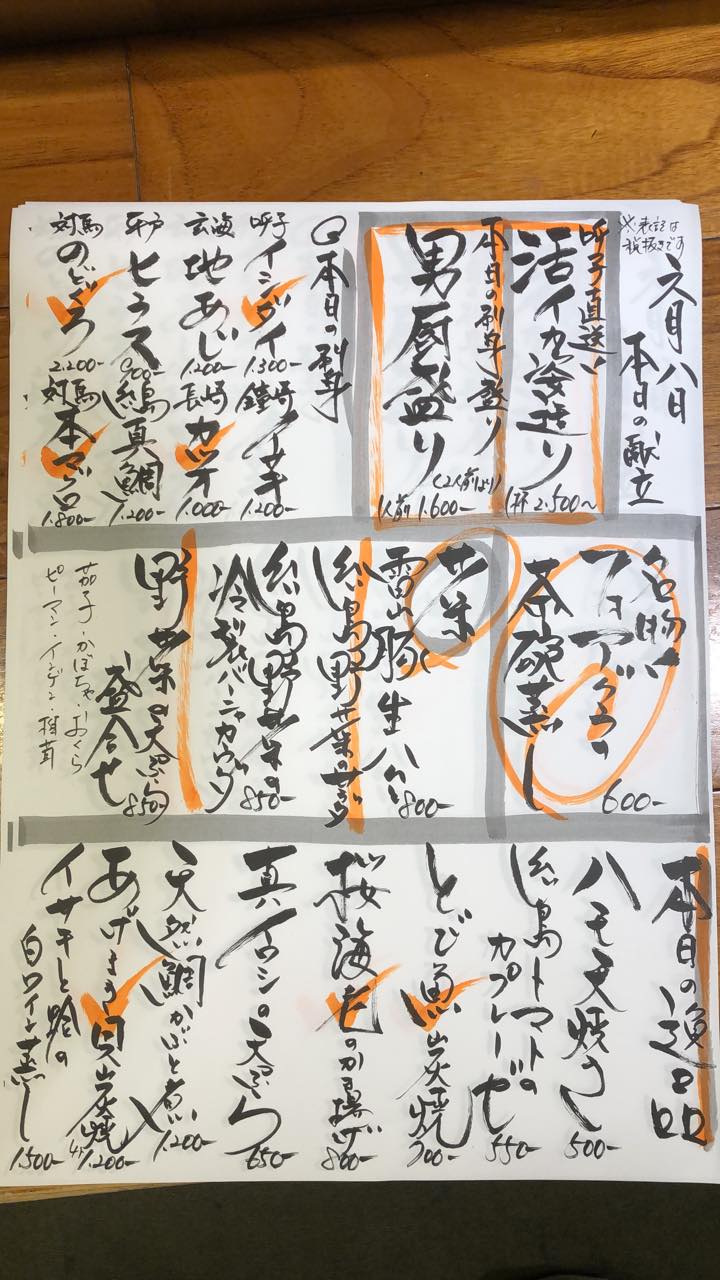 六月八日
本日の献立
※表記は
税抜きです
呼子直送い
活イカ姿造り
1杯 2.500~
本日の刺身盛り
男厨盛り
(2人前より)
1人前 1.600-
本日の刺身
呼子 イシダイ 1.300-
鐘崎 イサキ 1.200-
玄海 地あじ 1.200-
長崎 カツオ 1.000-
平戸 ヒラス 900-
糸島 真鯛 1.200-
対馬 のどぐろ 2.200-
対馬 本マグロ 1.800-
名物
フォアグラの
茶碗蒸し
600-
サ菜
雷山豚生ハム 800-
糸島野サ菜のサラダ
糸島野サ菜の
冷製バーニャカウダ 850-
野サ菜の天ぷら
盛合せ 850-
茄子・かぼちゃ・おくら
ピーマン・インゲン・椎茸
本日の逸品
ハモ天焼き 500-
糸島トマトの
カプレーゼ 550-
とび魚炭焼 700-
桜海老のかき揚げ 800-
真イワシの天ぷら 650-
天然鯛かぶと煮 1.200-
あげまき貝炭焼 4ヶ 1.200-
イサキと蛤の
白ワイン蒸し 1.500-